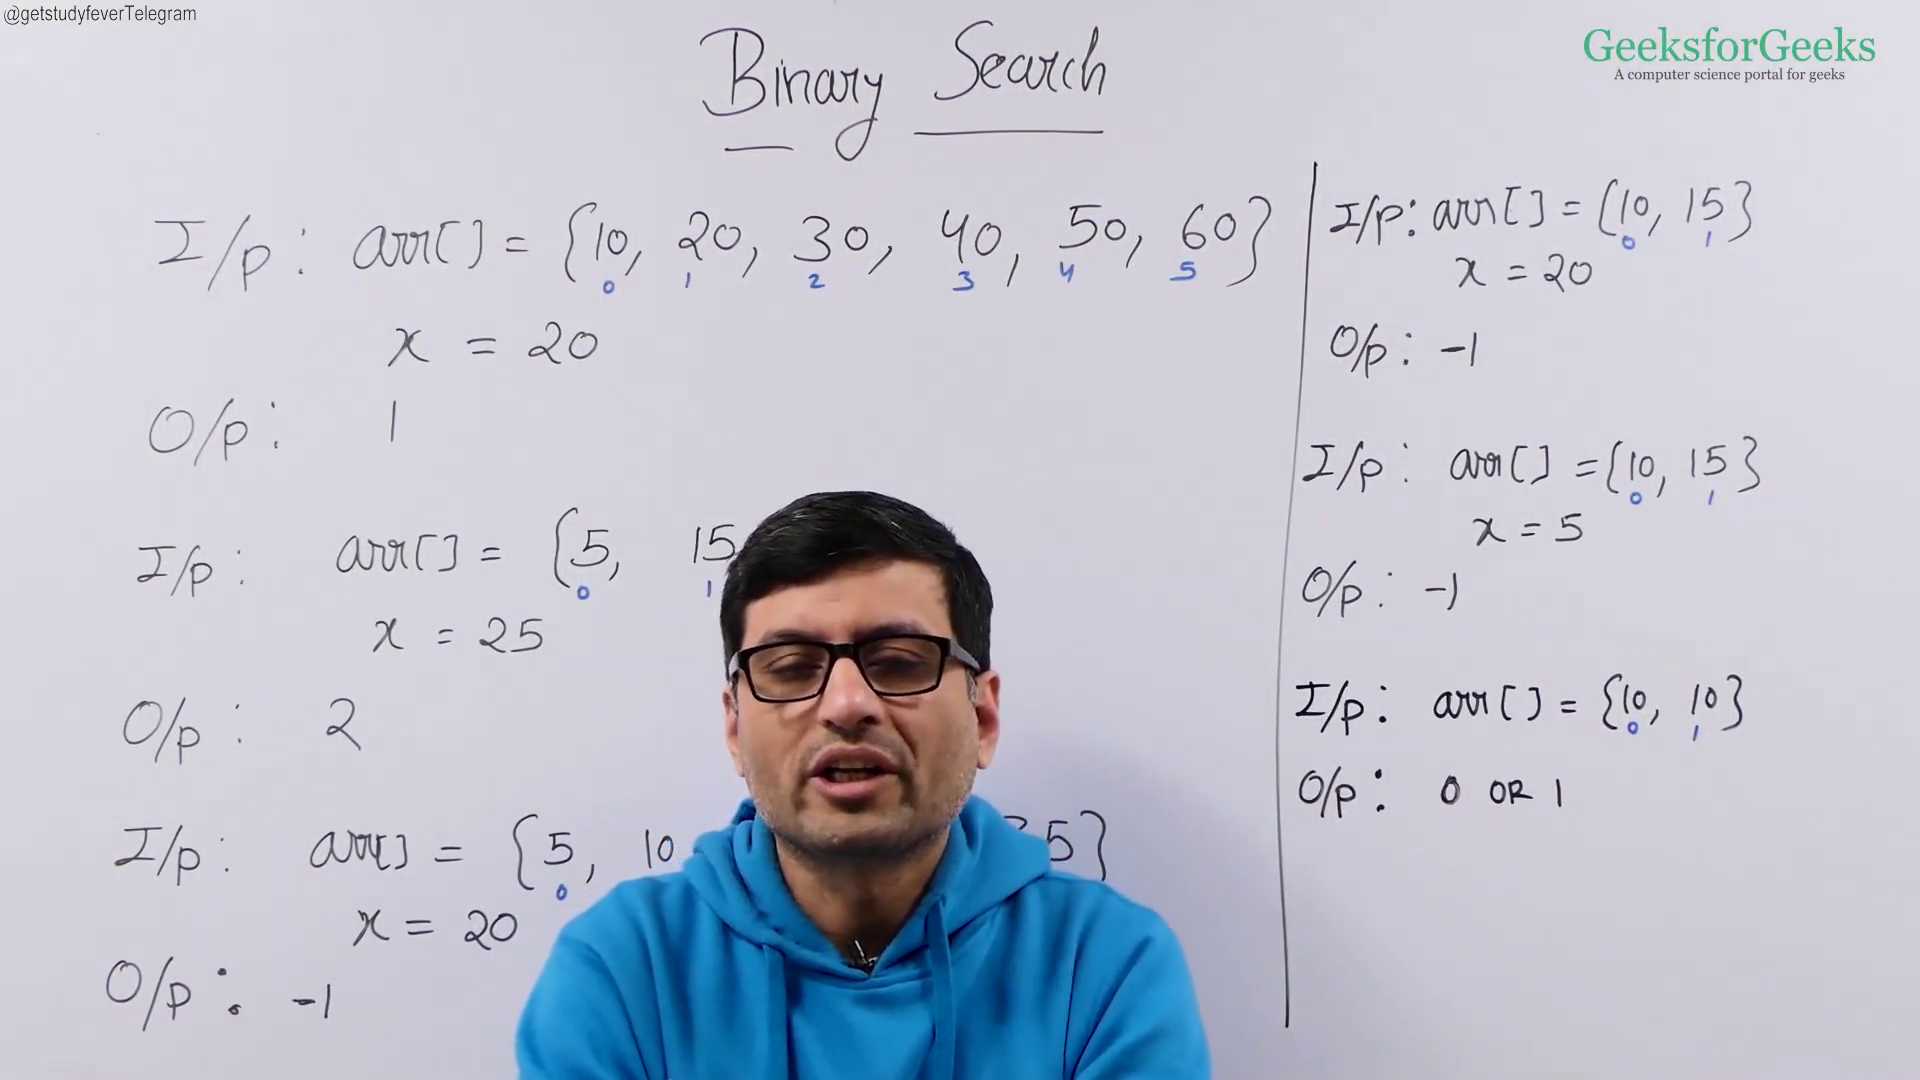 @getstudyfeverTelegram
GeeksforGeeks
A computer science portal for geeks
Binary Search
I/p: arr[] = {10, 20, 30, 40, 50, 60}
0 1 2 3 4 5
x = 20
O/p: 1
I/p: arr[] = {5, 15
0 1
x = 25
O/p: 2
I/p: arr[] = {5, 10 35}
0
x = 20
O/p: -1
I/p: arr[] = {10, 15}
0 1
x = 20
O/p: -1
I/p: arr[] = {10, 15}
0 1
x = 5
O/p: -1
I/p: arr[] = {10, 10}
0 1
O/p: 0 OR 1